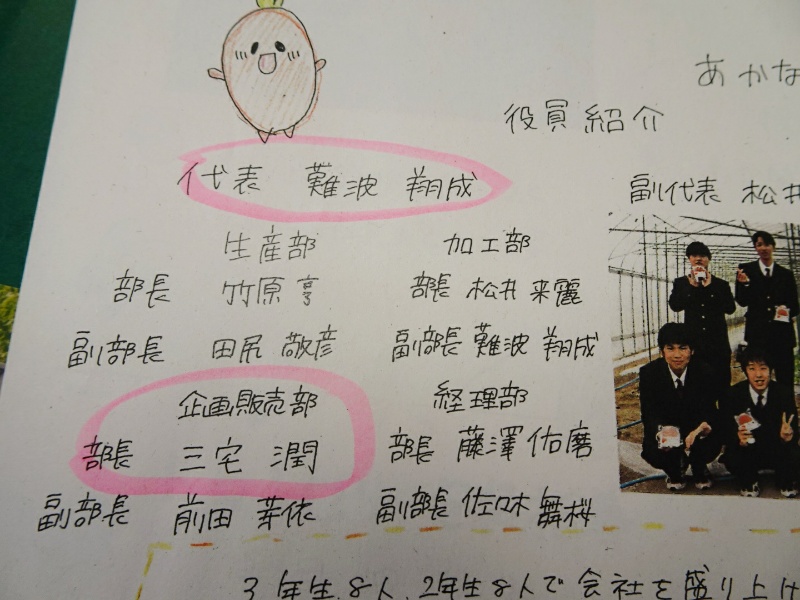 あかな
役員紹介
代表 難波 翔成
副代表 松井
生産部 加工部
部長 竹原 亨 部長 松井 来麗
副部長 田尻 敬彦 副部長 難波 翔成
企画販売部 経理部
部長 三宅 潤 部長 藤澤 佑磨
副部長 前田 芽依 副部長 佐々木 舞桜
3年生8人、2年生8人で会社を盛り上げ